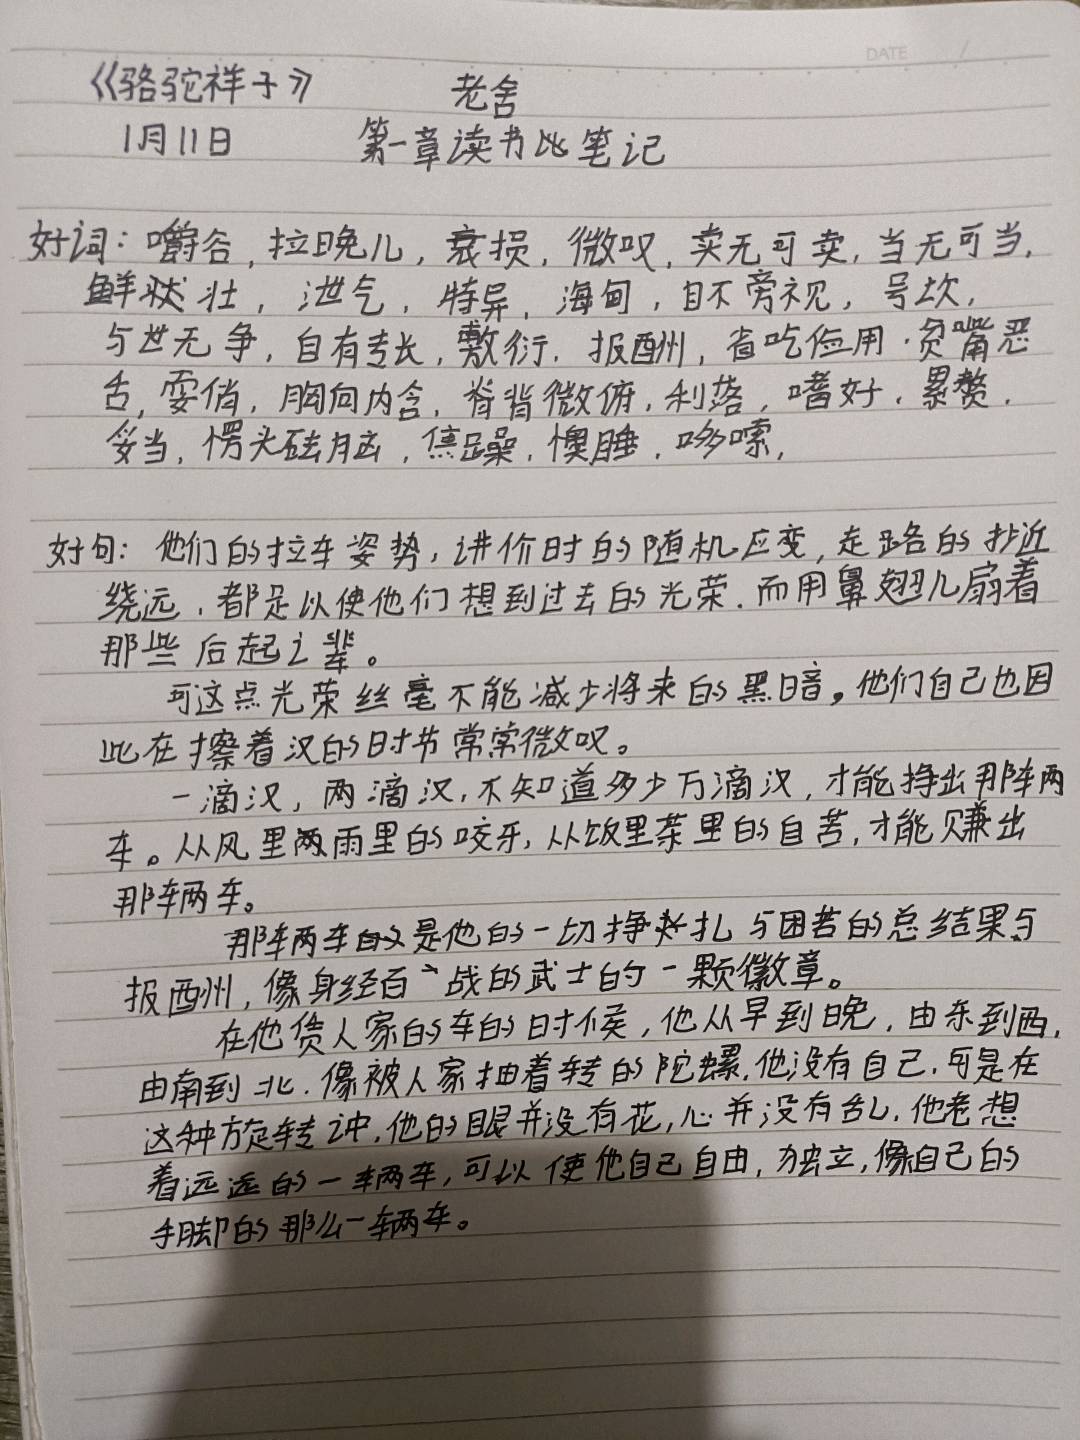 DATE /
《骆驼祥子》 老舍
1月11日 第一章读书比笔记
好词：嚼谷，拉晚儿，衰损，微叹，卖无可卖，当无可当，
鲜状壮，泄气，特异，海甸，目不旁视，号坎，
与世无争，自有专长，敷衍，报酬，省吃俭用，贫嘴恶
舌，耍俏，胸向内含，脊背微俯，利落，嗜好，累赘，
妥当，愣头磕脑，焦躁，懊睡，哆嗦，
好句：他们的拉车姿势，讲价时的随机应变，走路的抄近
绕远，都足以使他们想到过去的光荣，而用鼻翅儿扇着
那些后起之辈。
可这点光荣丝毫不能减少将来的黑暗，他们自己也因
此在擦着汉的时节常常微叹。
一滴汉，两滴汉，不知道多少万滴汉，才能挣出那辆
车。从风里雨里的咬牙，从饭里茶里的自苦，才能赚出
那辆车。
那辆车是他的一切挣扎与困苦的总结果与
报酬，像身经百战的武士的一颗徽章。
在他赁人家的车的时候，他从早到晚，由东到西，
由南到北，像被人家抽着转的陀螺，他没有自己，可是在
这种旋转冲，他的眼并没有花，心并没有乱，他老想
着远远的一辆车，可以使他自己自由，独立，像自己的
手脚的那么一辆车。